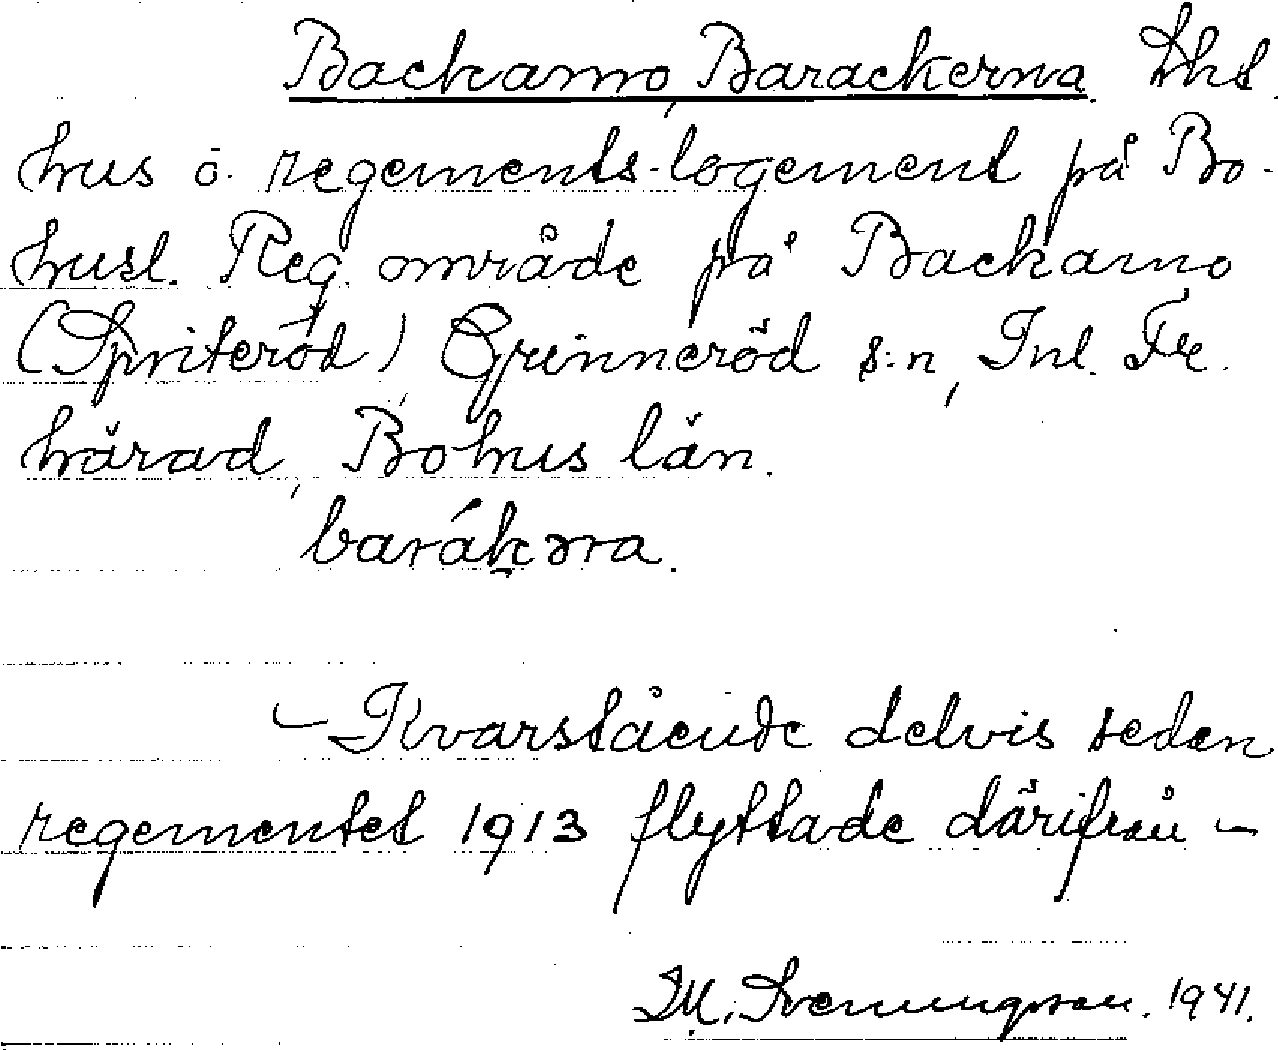 Backamo, Barackerna. Uthus
hus o. regements-logement på Bo-
husl. Reg. område på Backamo
(Spriteröd) Grinneröd s:n, Inl. Fre.
härad, Bohus län.
barákəra.
– Kvarstående delvis sedan
regementet 1913 flyttade därifrån –
M. Svenungsson. 1941.